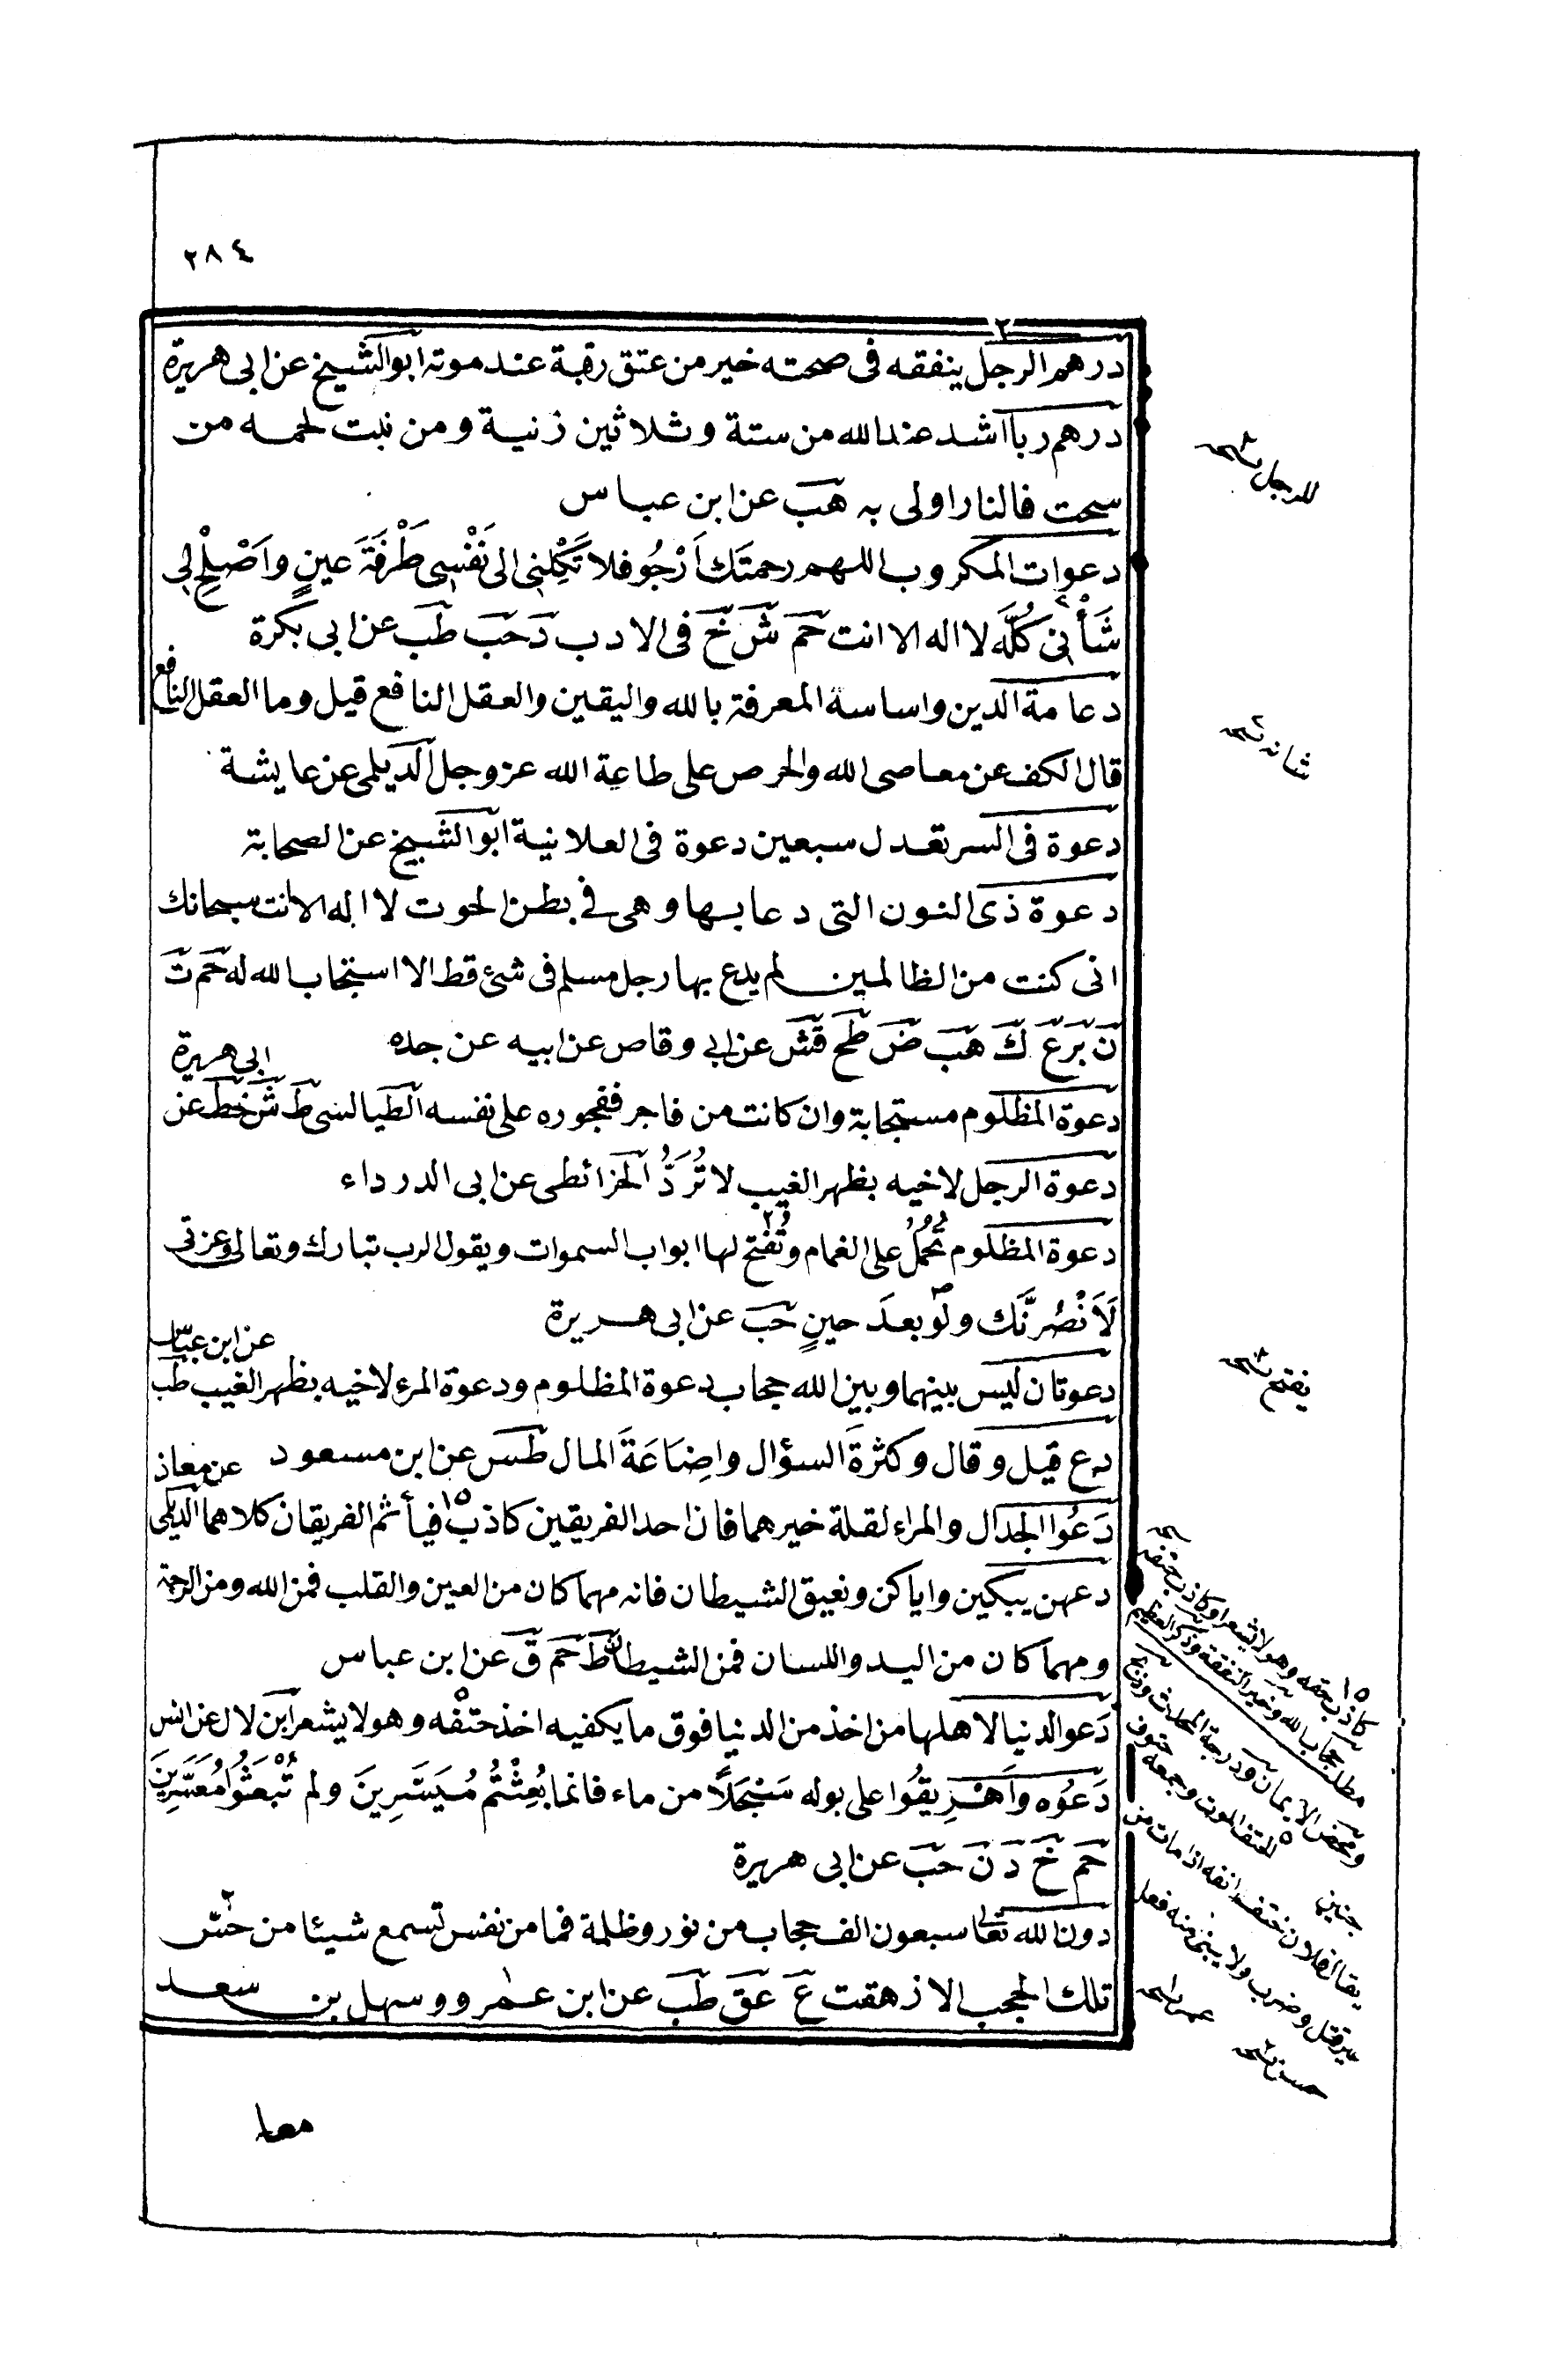 ٢٨٤
درهم الرجل ينفقه فى صحته خير من عتق رقبة عند موته ابوالشيخ عن ابى هريرة
درهم ربا اشد عند الله من ستة وثلاثين زنية ومن نبت لحمه من
سحت فالنار اولى به هَبَ عن ابن عباس
دعوات المكروب اللهم رحمتَك اَرْجُو فلا تَكِلْنى الى نَفْسِى طَرْفَةَ عينٍ واَصْلِحْ لِى
شَأْنِى كُلَّه لا اله الا انت حَمَ شَ خَ فى الادب دَ حَبَ طَبَ عن ابى بكرة
دعامة الدين واساسة المعرفة بالله واليقين والعقل النافع قيل وما العقل النافع
قال الكف عن معاصى الله والحرص على طاعة الله عز وجل الديلمى عن عايشة
دعوة فى السر تعدل سبعين دعوة فى العلانية ابوالشيخ عن الصحابة
دعوة ذى النون التى دعا بها وهى فى بطن الحوت لا اله الا انت سبحانك
انى كنت من الظالمين لم يدع بها رجل مسلم فى شئ قط الا استجاب الله له حَمَ تَ
نَ بَزَ عَ كَ هَبَ ضَ طَحَ قَشَ عن ابى وقاص عن ابيه عن جده
دعوة المظلوم مستجابة وان كانت من فاجر ففجوره على نفسه الطيالسى طَ شَ خَطَ عن
ابى هريرة
دعوة الرجل لاخيه بظهر الغيب لا تُرَدُّ الخرائطى عن ابى الدرداء
دعوة المظلوم تُحْمَلُ على الغمام وتُفْتَح لها ابواب السموات ويقول الرب تبارك وتعالى وعزتى
لَاَنْصُرَنَّك ولَوْ بعدَ حينٍ حَبَ عن ابى هريرة
دعوتان ليس بينهما وبين الله حجاب دعوة المظلوم ودعوة المرء لاخيه بظهر الغيب طَبَ
عن ابن عباس
دع قيل وقال وكثرةَ السؤال واِضَاعَةَ المال طَسَ عن ابن مسعود
دَعُوا الجدال والمراء لقلة خيرهما فان احد الفريقين كاذب فيأثم الفريقان كلاهما الديلمى
عن معاذ
دعهن يبكين واياكن ونعيق الشيطان فانه مهما كان من العين والقلب فمن الله ومن الرحمة
ومهما كان من اليد واللسان فمن الشيطان طَ حَمَ قَ عن ابن عباس
دَعوا الدنيا لاهلها من اخذ من الدنيا فوق ما يكفيه اخذ حتْفه وهو لا يشعر ابن لال عن انس
دَعُوه واَهْرِيقُوا على بوله سَجْلًا من ماء فانما بُعِثْتُم مُيَسِّرِينَ ولم تُبْعَثُوا مُعَسِّرِينَ
حَمَ خَ دَ نَ حَبَ عن ابى هريرة
دون الله تعالى سبعون الف حجاب من نور وظلمة فما من نفس تسمع شيئا من حسّ
تلك الحجب الا زهقت عَ عَقَ طَبَ عن ابن عمرو وسهل بن سعد
للرجل نسخه
شانه نسخه
يفتح نسخه
كاذب بحقه وهو لا يشعر او كاذب حتفه
مطلب حجاب الله وخير النفقة وذكر العظيم
يقال فلان حتف انفه اذا مات من
غير قتل وضرب ولا يبنى منه فعل
عمر نسخه
حسن نسخه
معا